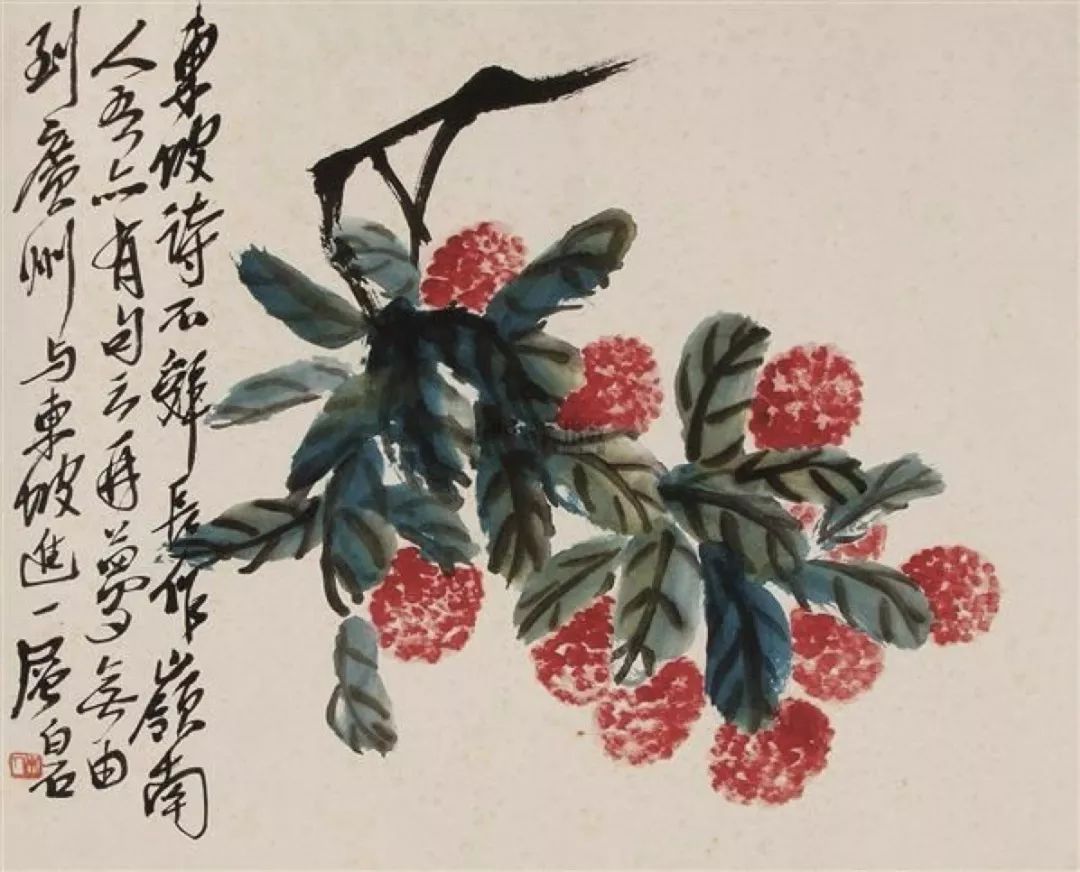 東坡詩不辭長作嶺南
人吾亦有句云再夢無由
到廣州与東坡進一層白石